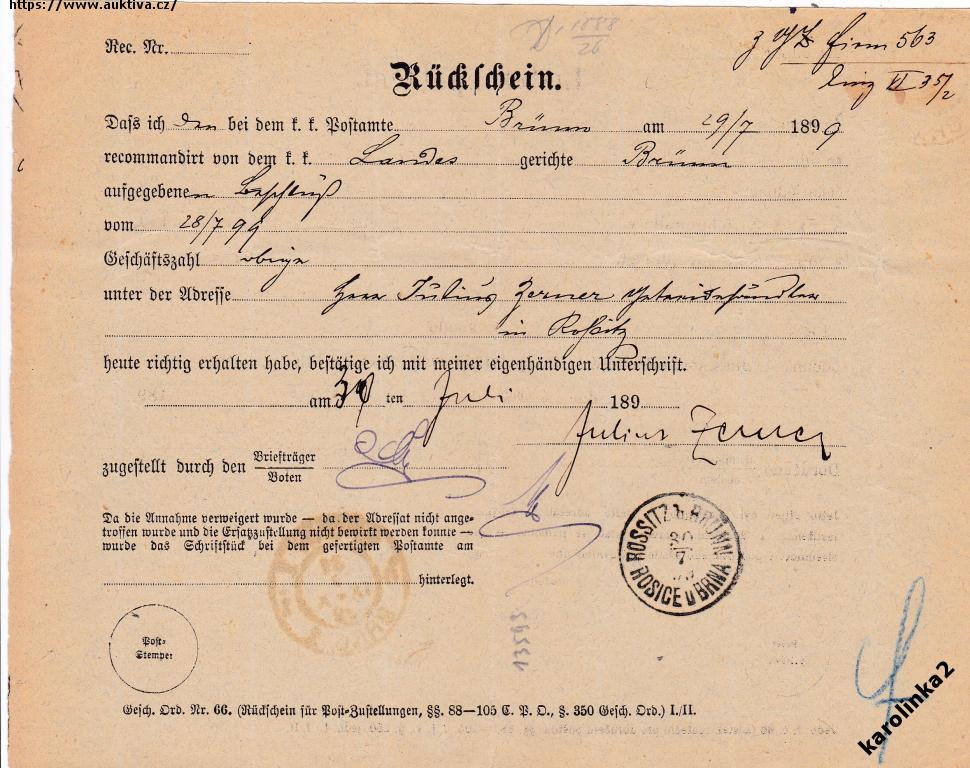 https://www.auktiva.cz/
1888
26
z G/Z Firm 563
Einz VI 35/2
Rec. Nr.
Rückschein.
Daß ich den bei dem k. k. Postamte Brünn am 29/7 1899
recommandirt von dem k. k. Landes gerichte Brünn
aufgegebenen Beschluß
vom 28/7 99
Geschäftszahl obige
unter der Adresse Herr Julius Zerner Getreidehändler
in Rossitz
heute richtig erhalten habe, bestätige ich mit meiner eigenhändigen Unterschrift.
am 30 ten Juli 189
Julius Zerner
zugestellt durch den Briefträger
Boten
Da die Annahme verweigert wurde — da der Adressat nicht ange-
troffen wurde und die Ersatzzustellung nicht bewirkt werden konnte —
wurde das Schriftstück bei dem gefertigten Postamte am
hinterlegt.
ROSSITZ b. BRÜNN
30
7
ROSICE u BRNA
13595
Post-
Stempel
Gesch. Ord. Nr. 66. (Rückschein für Post-Zustellungen, §§. 88—105 C. P. O., §. 350 Gesch. Ord.) I./II.
karolinka2